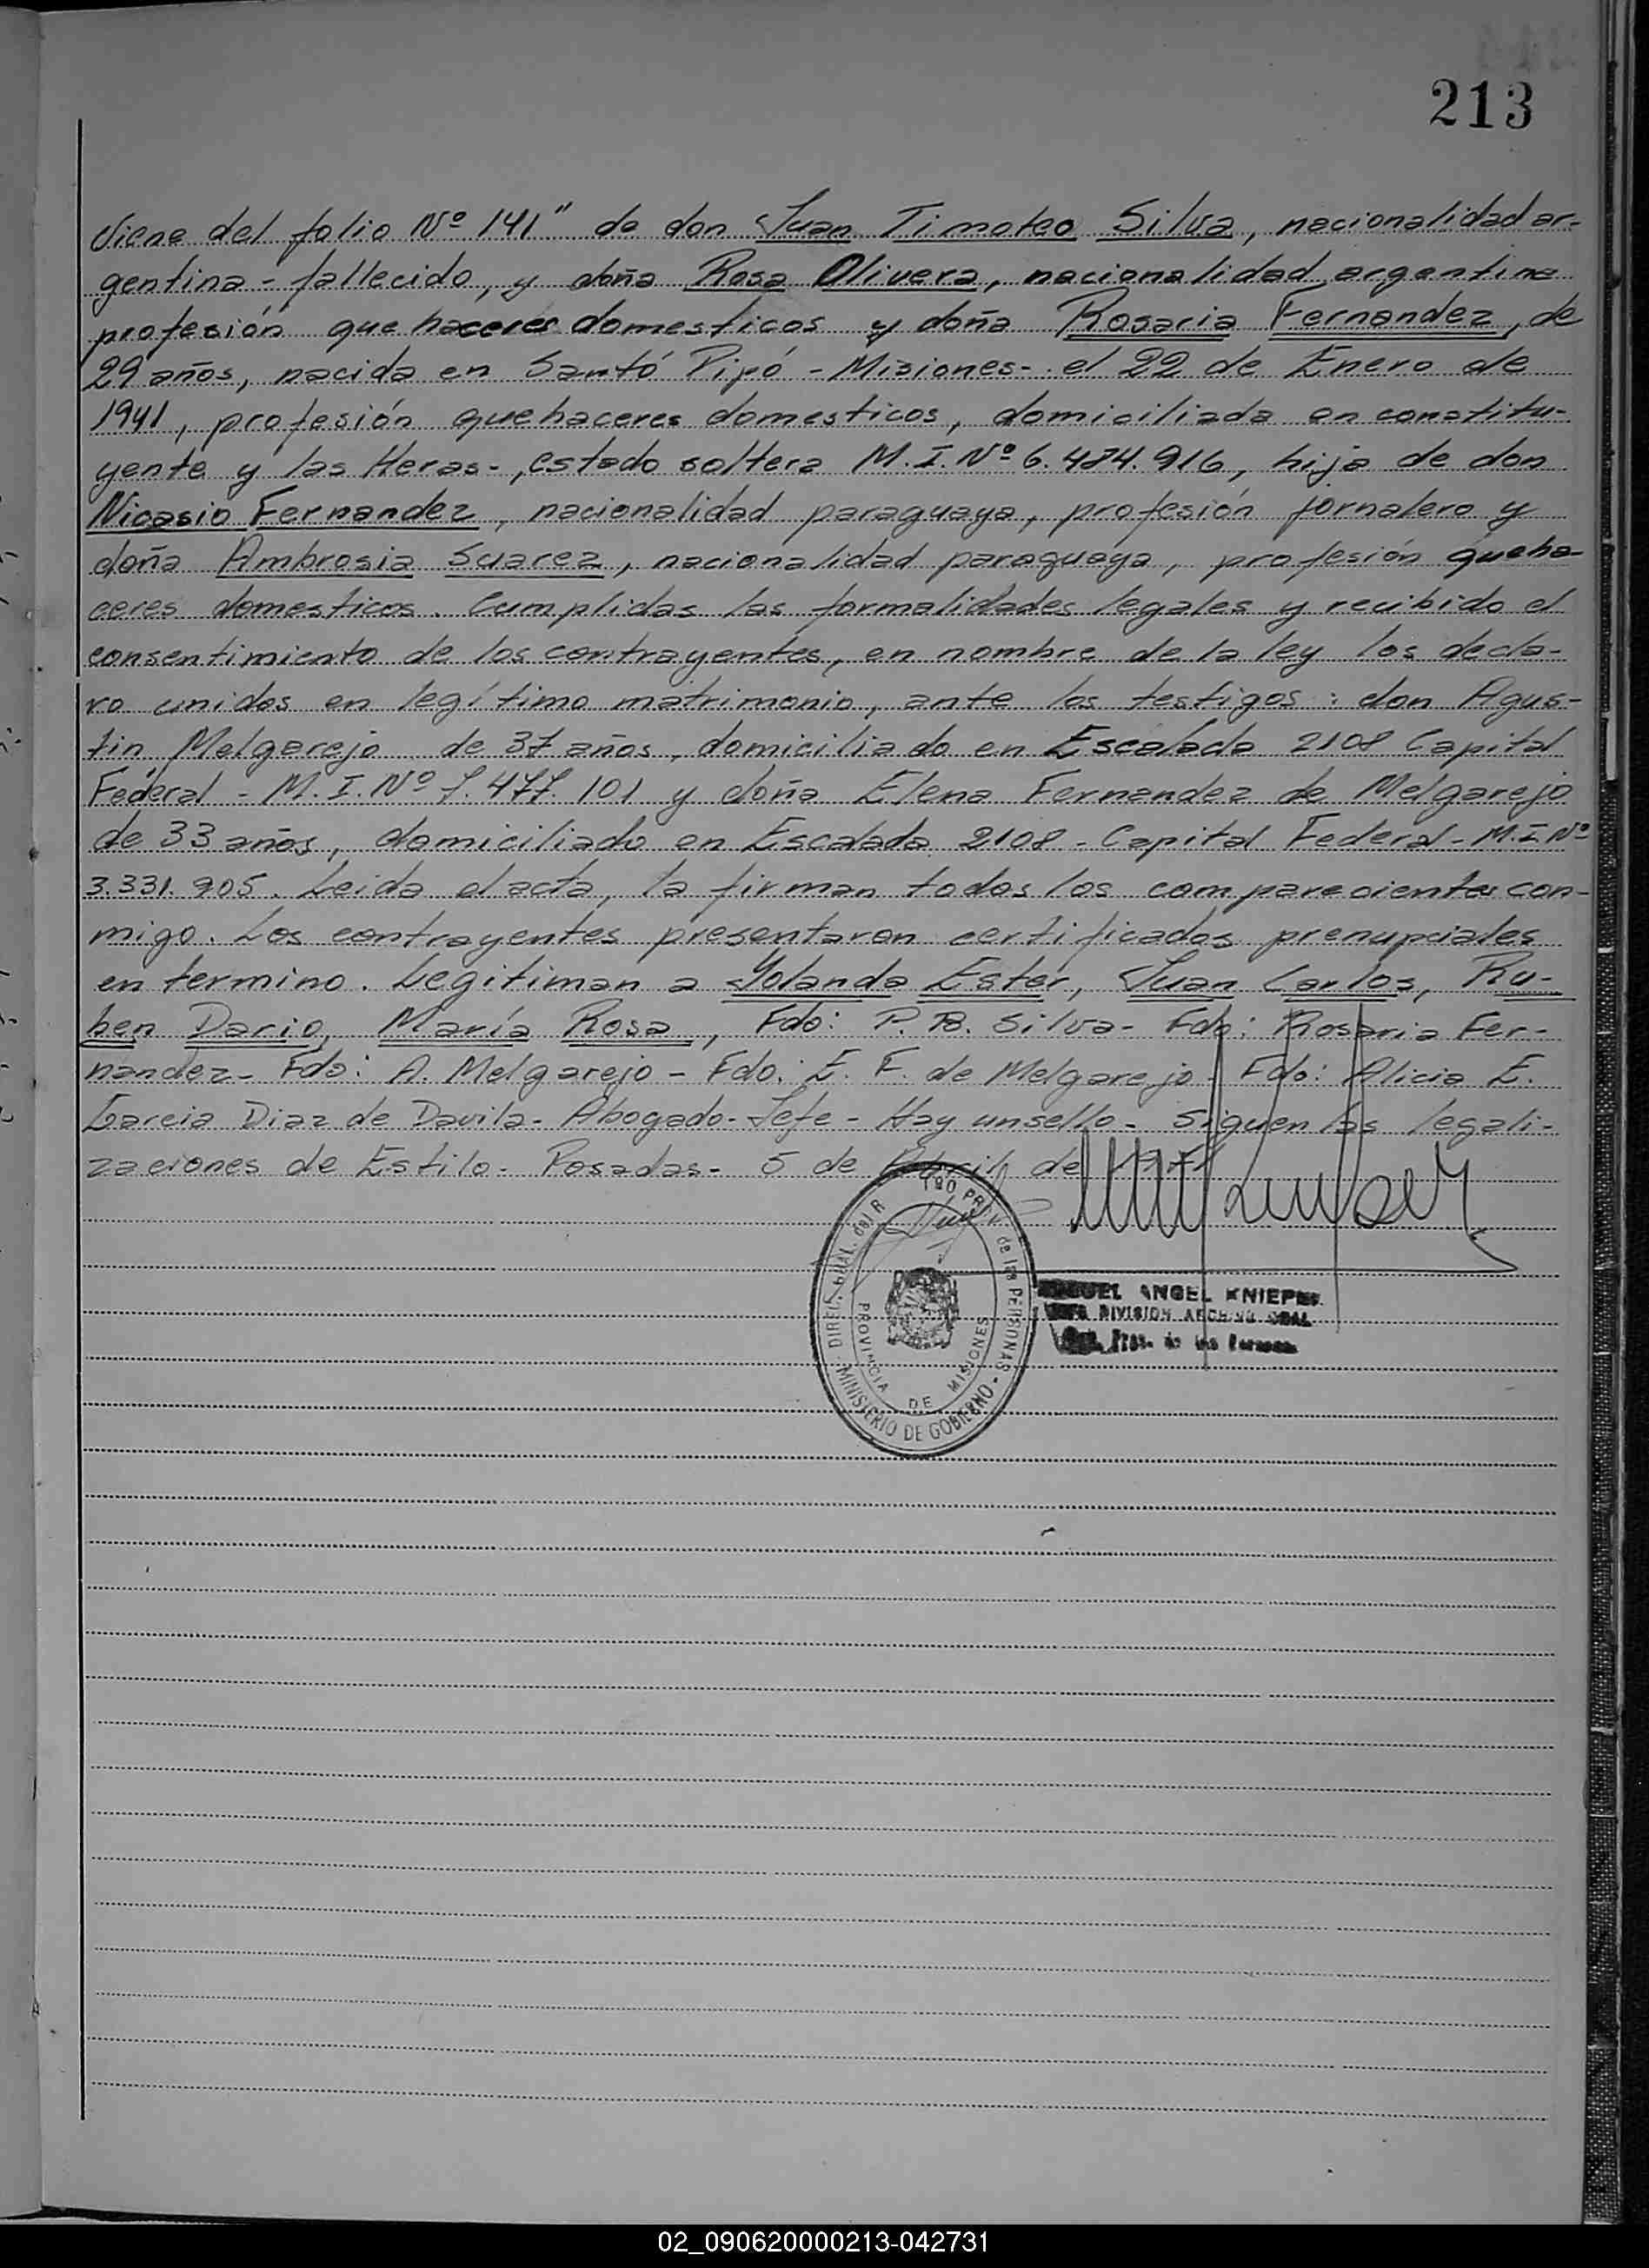 213
Viene del folio Nº 141" de don Juan Timoteo Silva, nacionalidad ar-
gentina - fallecido, y doña Rosa Olivera, nacionalidad argentina
profesión que haceres domesticos y doña Rosaria Fernandez, de
29 años, nacida en Santó Pipó - Misiones - el 22 de Enero de
1941, profesión quehaceres domesticos, domiciliada en constitu-
yente y las Heras -, estado soltera M.I. Nº 6.484.916, hija de don
Nicasio Fernandez, nacionalidad paraguaya, profesión jornalero y
doña Ambrosia Suarez, nacionalidad paraguaya, profesión queha-
ceres domesticos. Cumplidas las formalidades legales y recibido el
consentimiento de los contrayentes, en nombre de la ley los decla-
ro unidos en legítimo matrimonio, ante los testigos: don Agus-
tin Melgarejo de 37 años, domiciliado en Escalada 2108 Capital
Federal - M.I. Nº 7.477.101 y doña Elena Fernandez de Melgarejo
de 33 años, domiciliado en Escalada 2108 - Capital Federal - M.I Nº
3.331.905. Leida el acta, la firman todos los comparecientes con-
migo. Los contrayentes presentaron certificados prenupciales
en termino. Legitiman a Yolanda Ester, Juan Carlos, Ru-
ben Dario, María Rosa, Fdo: P. B. Silva - Fdo: Rosaria Fer-
nandez - Fdo: A. Melgarejo - Fdo. E. F. de Melgarejo - Fdo: Alicia E.
Garcia Diaz de Davila - Abogado - Jefe - Hay un sello - Siguen las legali-
zaciones de Estilo - Posadas - 5 de Abril de
PROVINCIA DE MISIONES
MINISTERIO DE GOBIERNO
de las PERSONAS
ANGEL KNIEPE
DIVISION ARCHIVO GRAL
02_090620000213-042731